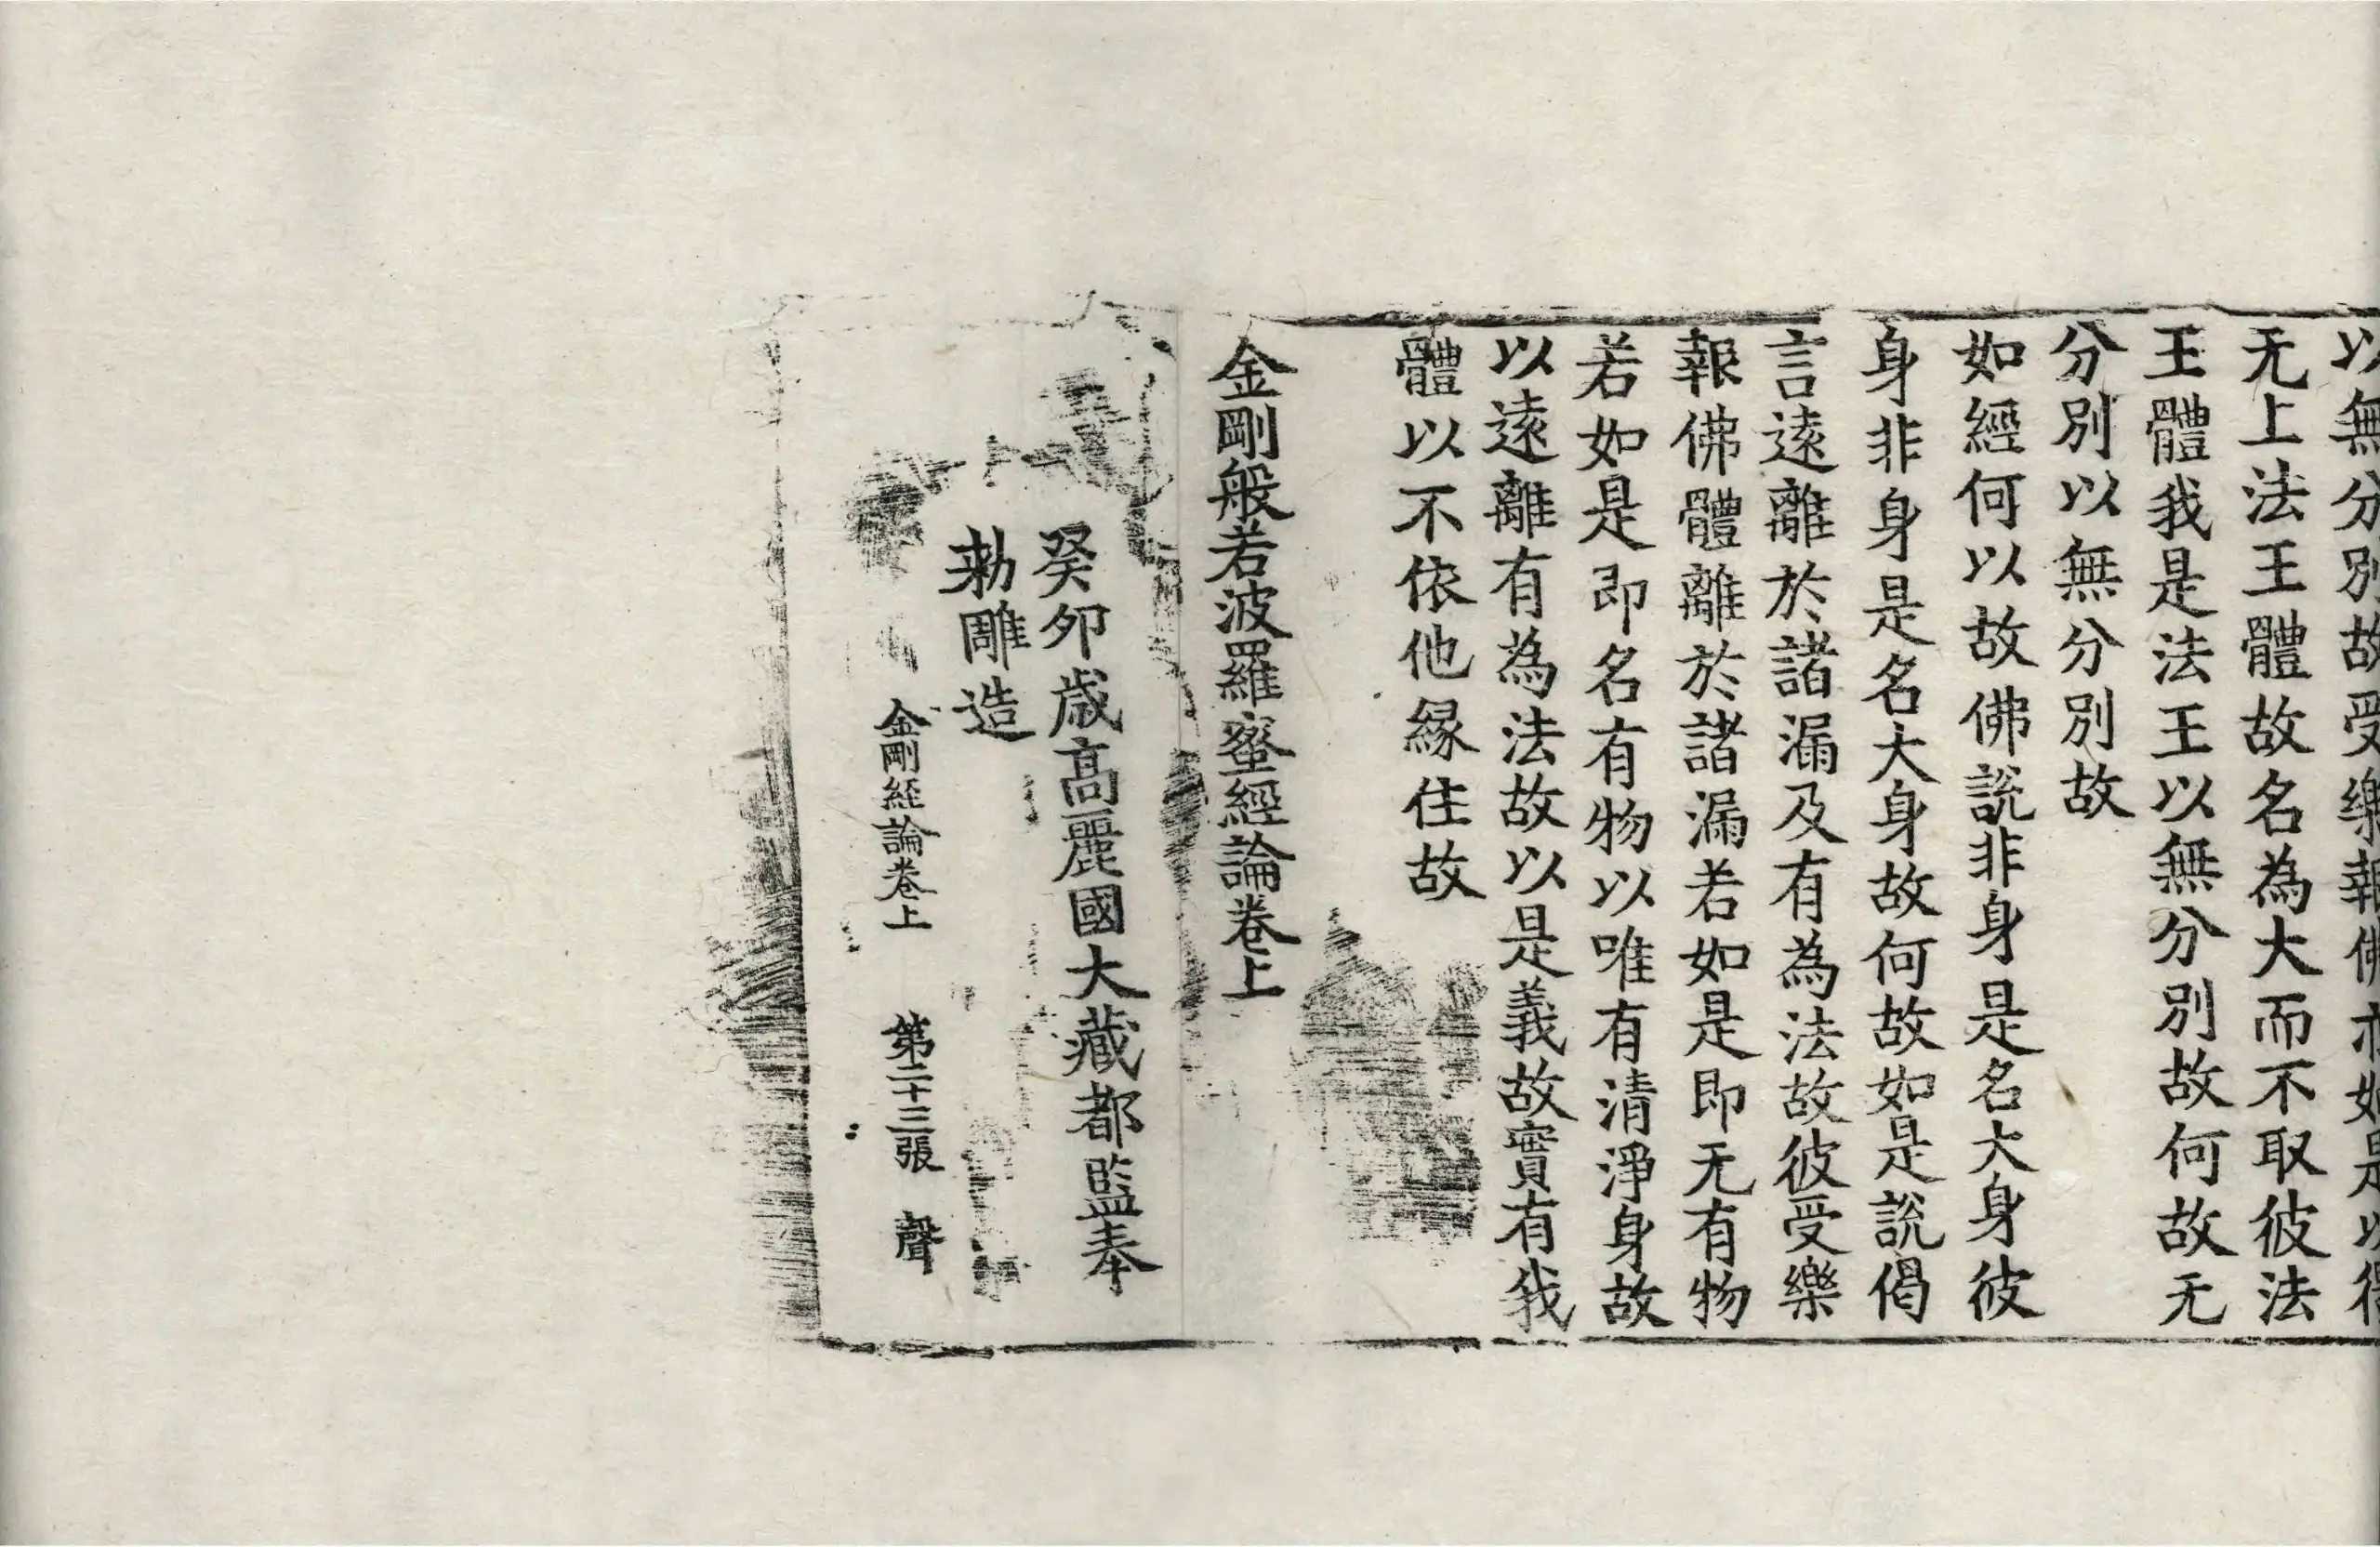 以無分別故受樂報佛亦如是以得
无上法王王體故名為大而不取彼法
王體我是法王以無分別故何故无
分別以無分別故
如經何以故佛說非身是名大身彼
身非身是名大身故何故如是說偈
言遠離於諸漏及有為法故彼受樂
報佛體離於諸漏若如是即无有物
若如是即名有物以唯有清淨身故
以遠離有為法故以是義故實有我
體以不依他緣住故
金剛般若波羅蜜經論卷上
癸卯歳高麗國大藏都監奉
勑雕造
金剛経論卷上 第二十三張 聲